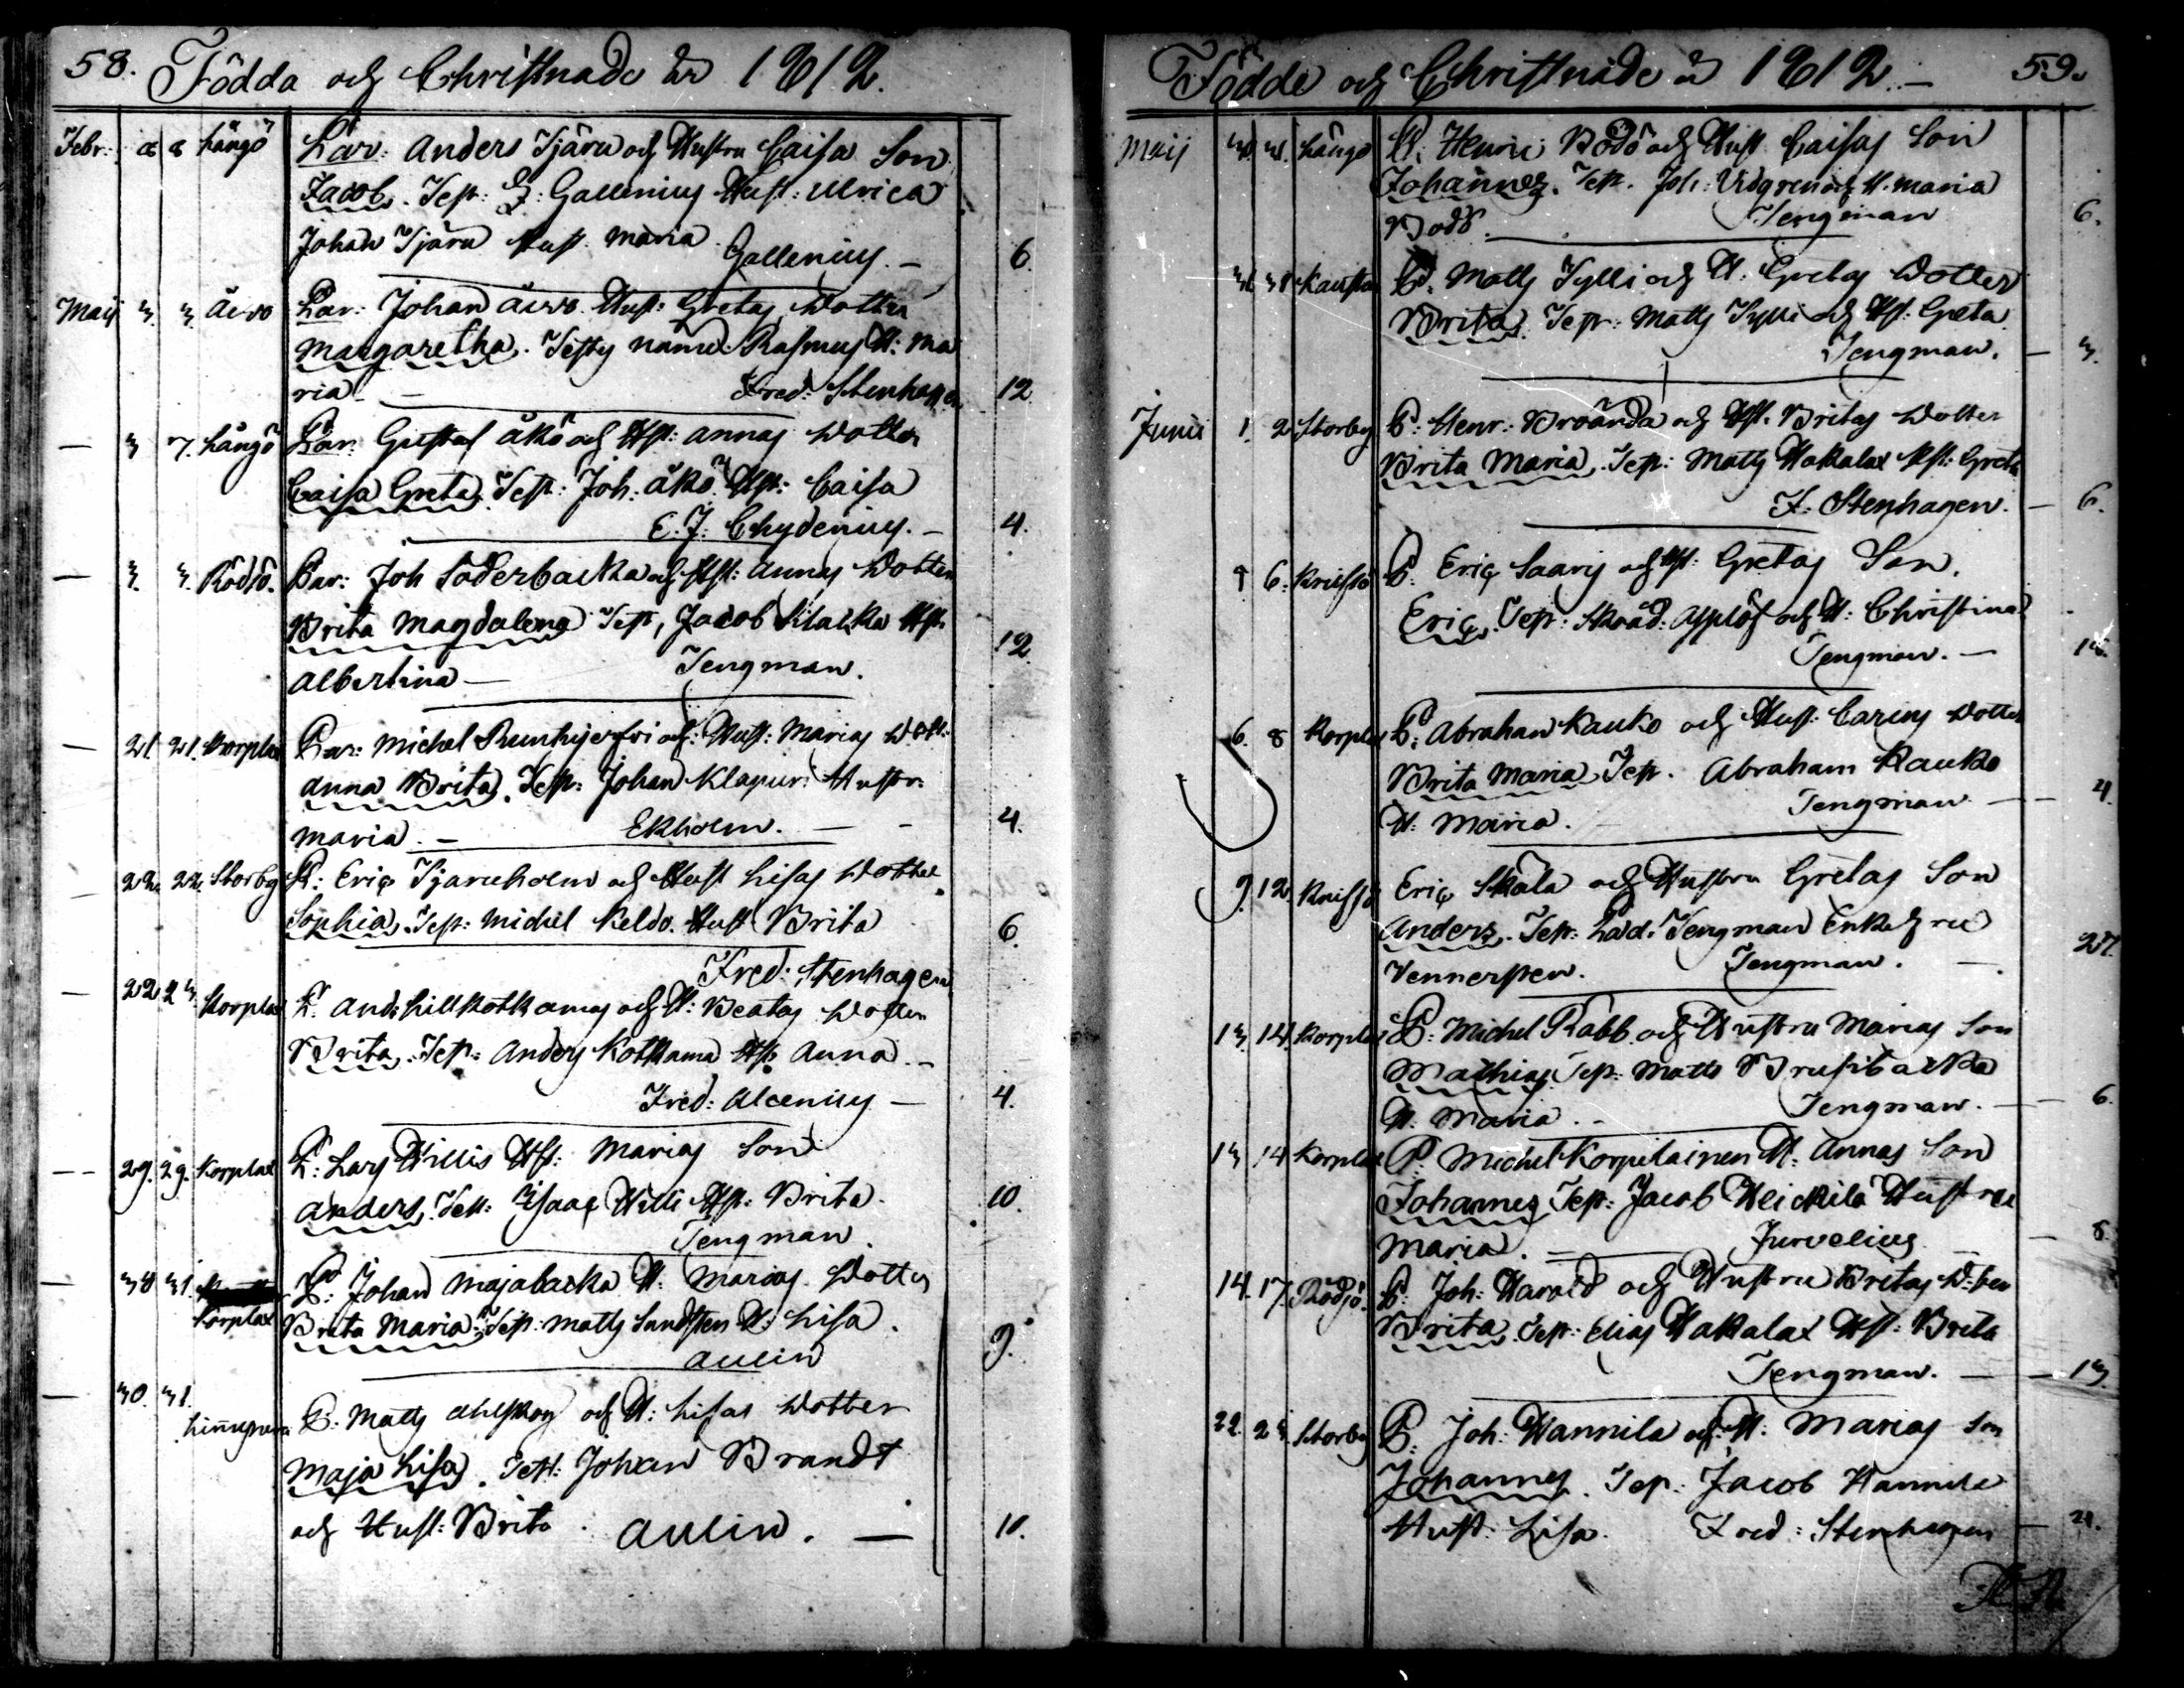 58. Födda och Christnade år 1812.
Febr. 8 8 Långö Lär: Anders Tjäru och Hustru Caisa Son
Jacob. Test: J: Gallenius Hust: Ulrica
Johan Tjäru Hust. Maria.
Gallenius. — 6.
Maij 3. 3. Åivo Lär: Johan Åivo Hust: Gretas Dotter
Margaretha. Testes Rasmus H: Ma
ria — Fred: Stenhagen 12
— 3 7. Långö Lär: Gustaf Åkö och Hst: Annas Dotter
Caisa Greta. Test: Joh: Åkö Hst: Caisa
E. J. Chydenius. — 4.
— 3. 3. Rödsö. Lär: Joh Söderbacka och Hst: Annas Dotter
Brita Magdalena Test, Jacob Hst.
Albertina — Tengman. 12.
— 21. 21. Korplax Lär: Michel och Hust: Marias Dott:
Anna Brita. Test: Johan Klapuri Hustr.
Maria. — Ekholm. — 4.
22. 22. Storby L: Eric Tjäruholm och Hust Lisas Dotter
Sophia. Test: Michel Keldo. Hust Brita 6.
Fred: Stenhagen
— 22 23 Korplax L. And: Lillkotkamas och H: Beatas Dotter
Brita. Test: Anders Kotkama Hst. Anna. —
Fred: Alcenius — 4.
— 29. 29. Korplax L: Lars Willis Hst: Marias Son
Anders. Test: Isaac Willi Hst: Brita. 10.
Tengman.
— 30 31. L: Johan Majabacka H. Marias Dotter
Korplax Brita Maria. Test: Matts Sandsten H: Lisa. 9.
Aulin
— 30. 31. L: Matts Ahlskog och H: Lisas Dotter
Maja Lisa. Test: Johan Brandt
och Hust: Brita. Aulin. — 10.
Födde och Christnade år 1812. — 59.
Maij 31. 31. Långö L: Henric Bodö och Hust Caisas Son
Johannes. Test. Joh: Vidgren och H. Maria
Bodö. Tengman 6.
L. Matts Tylli och H. Gretas Dotter
Brita. Test: Matts Tylli och Hst: Greta
Tengman. — 3.
Junii 1. 2 Storby L: Henr: Broända och Hst. Britas Dotter
Brita Maria. Test: Matts Hakalax Hst: Greta
F: Stenhagen. — 6.
6. L: Eric Saaris och Hst: Gretas Son.
Eric. Test: Applöf och H: Christina
Tengman. —
6. 8 Korplax L: Abraham Kauko och Hust: Carins Dotter
Brita Maria. Test. Abraham Kauko
H. Maria. Tengman — 4.
9. 12. Eric Skåla och Hustru Gretas Son
Anders. Test: Tengman
Vennersten. Tengman. —
13. 14. Korplax L: Michel Rabb och Hustru Marias Son
Mathias. Test: Matts Brusibacka
H. Maria. — Tengman. — 6.
13 14 Korplax L: Michel Korpilainen H. Annas Son
Johannes Test: Jacob Heickilä Hustru
Maria. — Jurvelius — 8
14. 17. Rödsö. L: Joh: Harald och Hustru Britas
Brita. Test: Elias Hakalax Hst: Brita
Tengman. — 13.
22. 23. Storby L: Joh: Wannila och H: Marias Son
Johannes. Test: Jacob Hannila
Hust: Lisa. Fred: Stenhagen — 21.